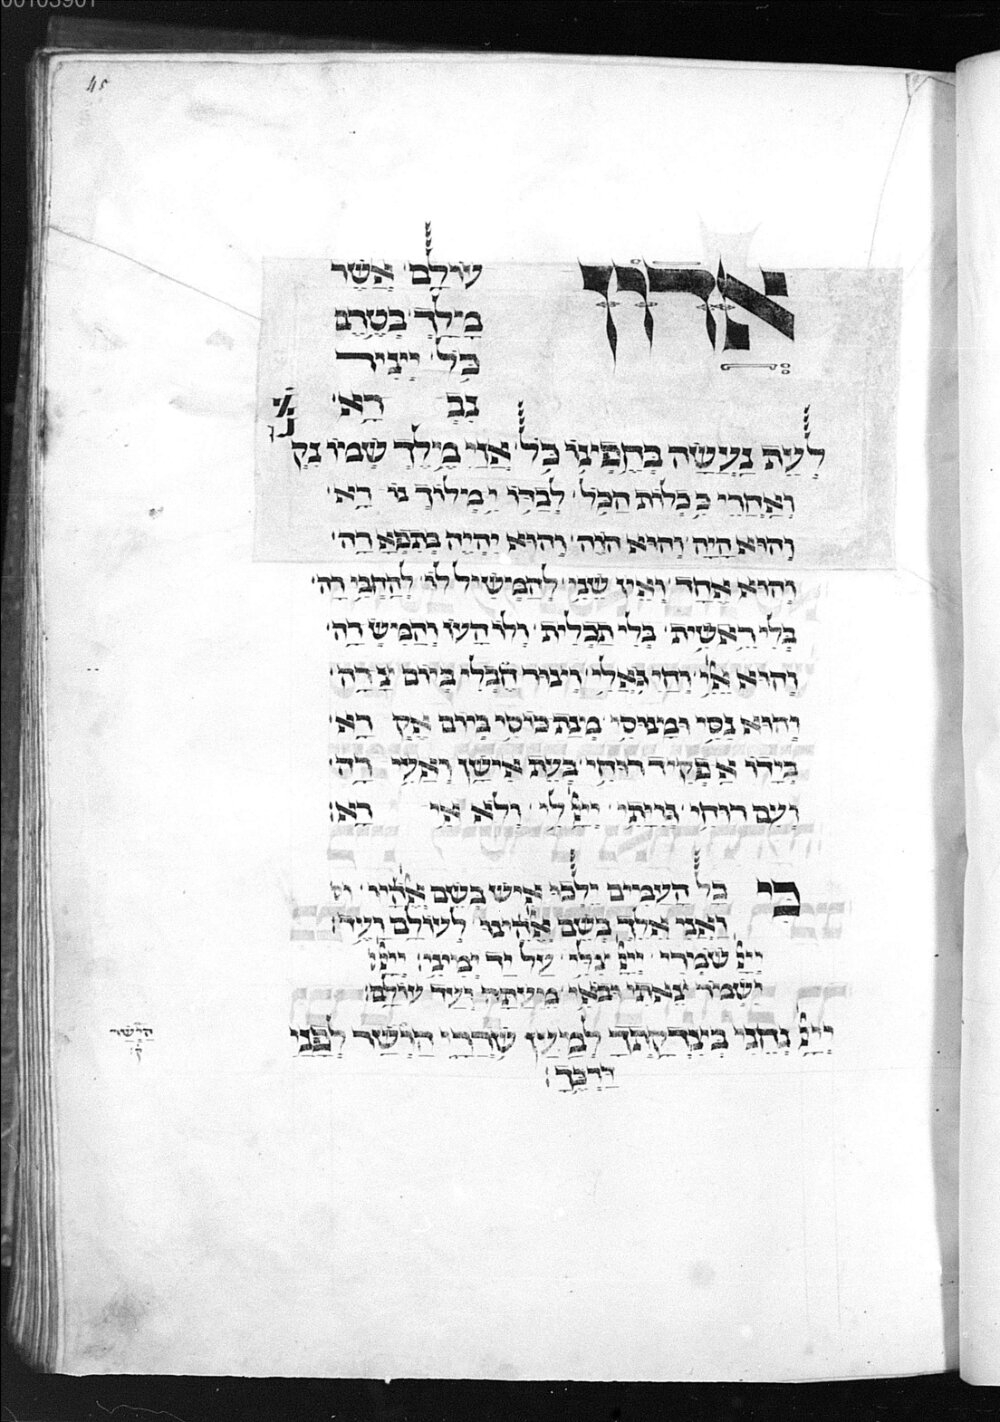 00103901
45
אדון
עוֹלָם אֲשֶׁר
מָלַךְ בְּטֶרֶם
כֹּל יְצִיר
נִבְ רָא
לְעֵת נַעֲשָׂה בְחֶפְצוֹ כֹּל אֲזַי מֶלֶךְ שְׁמוֹ נִקְ רָא
וְאַחֲרֵי כִּכְלוֹת הַכֹּל לְבַדּוֹ יִמְלוֹךְ נוֹ רָא
וְהוּא הָיָה וְהוּא הֹוֶה וְהוּא יִהְיֶה בְּתִפְאָ רָה
וְהוּא אֶחָד וְאֵין שֵׁנִי לְהַמְשִׁיל לוֹ לְהַחְבִּי רָה
בְּלִי רֵאשִׁית בְּלִי תַכְלִית וְלוֹ הָעוֹ וְהַמִּשְׂ רָה
וְהוּא אֵלִי וְחַי גֹּאֲלִי וְצוּר חֶבְלִי בְּיוֹם צָרָה
וְהוּא נִסִּי וּמָנוֹסִי מְנָת כּוֹסִי בְּיוֹם אֶקְ רָא
בְּיָדוֹ אַפְקִיד רוּחִי בְּעֵת אִישַׁן וְאָעִי רָה
וְעִם רוּחִי גְּוִיָּתִי ייי לִי וְלֹא אִי רָא
כי כָּל הָעַמִּים יֵלְכוּ אִישׁ בְּשֵׁם אֱלֹהָיו
וַאֲנִי אֵלֵךְ בְּשֵׁם אֱלֹהֵינוּ לְעוֹלָם וָעֶד
ייי שׁמְרִי ייי צִלִּי עַל יַד יְמִינִי ייי
יִשְׁמוֹר צֵאתִי וּבֹאִי מֵעַתָּה וְעַד עוֹלָם
ייי נְחֵנִי בְצִדְקָתֶךָ לְמַעַן שֹׁרְרָי הַוְשַׁר לְפָנַי
דַּרְכֶּךָ
הַיְשַׁר
ק